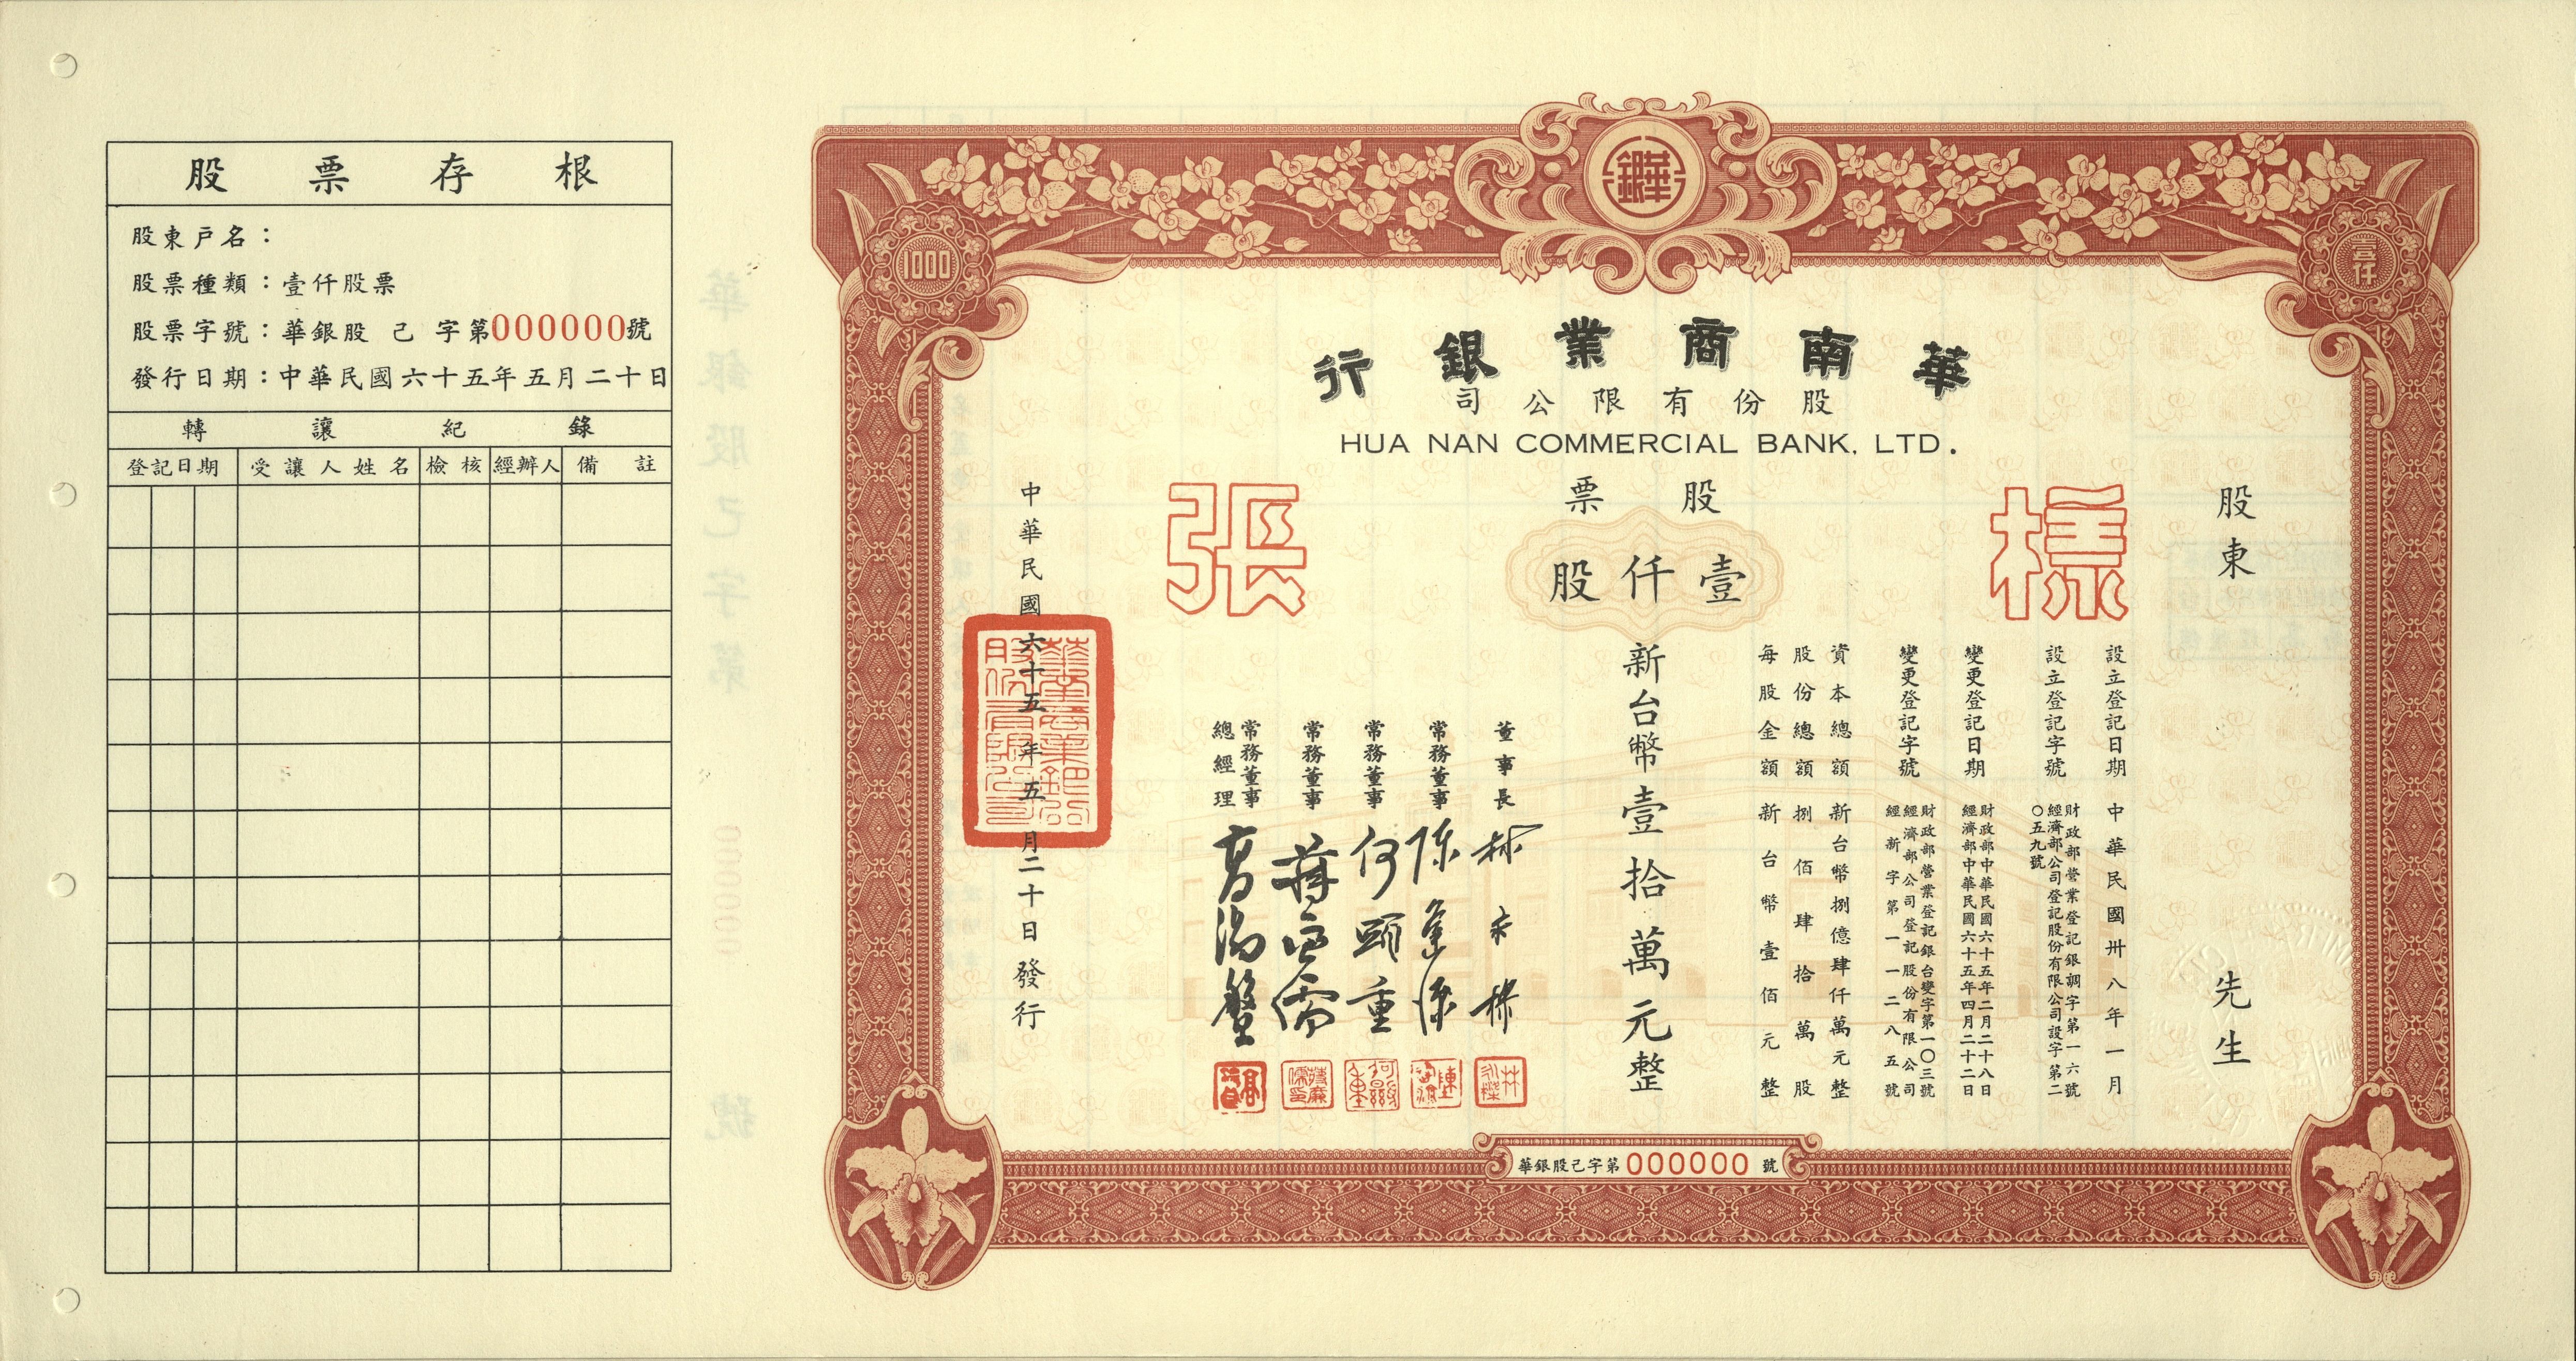 股票存根
股東戶名：
股票種類：壹仟股票
股票字號：華銀股 己 字第000000號
發行日期：中華民國六十五年五月二十日
轉讓紀錄
登記日期 受讓人姓名 檢核 經辦人 備註
華銀
1000
壹仟
華南商業銀行
股份有限公司
HUA NAN COMMERCIAL BANK, LTD.
股票
樣張
壹仟股
股東
先生
設立登記日期 中華民國卅八年一月
設立登記字號 財政部營業登記銀調字第一六號
經濟部公司登記股份有限公司設字第二
〇五九號
變更登記日期 財政部中華民國六十五年二月二十八日
經濟部中華民國六十五年四月二十二日
變更登記字號 財政部營業登記銀台變字第一〇三號
經濟部公司登記股份有限公司
經新字第一一二八五號
資本總額 新台幣捌億肆仟萬元整
股份總額 捌佰肆拾萬股
每股金額 新台幣壹佰元整
新台幣壹拾萬元整
董事長
常務董事
常務董事 何顯重
常務董事
常務董事
總經理
中華民國六十五年五月二十日發行
華銀股己字第000000號